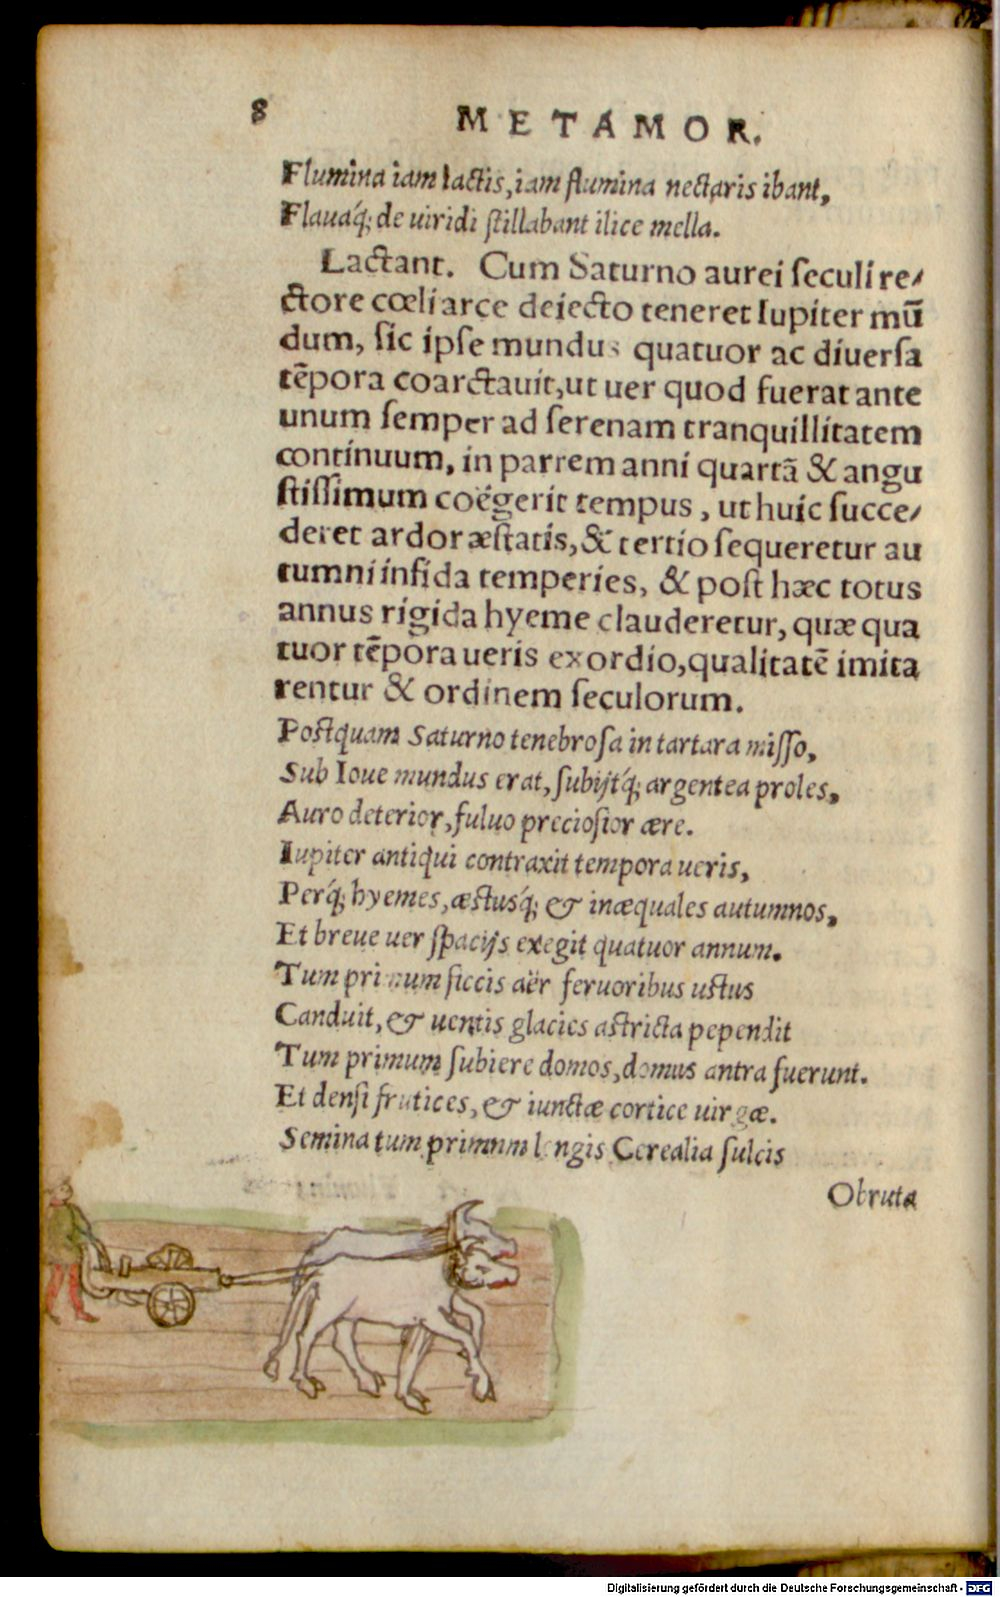 8 METAMOR.
Flumina iam lactis, iam flumina nectaris ibant,
Flauaq́; de uiridi ſtillabant ilice mella.
Lactant. Cum Saturno aurei ſeculi re⸗
ctore cœli arce deiecto teneret Iupiter mū
dum, ſic ipſe mundus quatuor ac diuerſa
tēpora coarctauit, ut uer quod fuerat ante
unum ſemper ad ſerenam tranquillitatem
continuum, in parrem anni quartā & angu
ſtiſſimum coëgerit tempus, ut huic ſucce⸗
deret ardor æſtatis, & tertio ſequeretur au
tumni infida temperies, & poſt hæc totus
annus rigida hyeme clauderetur, quæ qua
tuor tēpora ueris exordio, qualitatē imita
rentur & ordinem ſeculorum.
Poſtquam Saturno tenebroſa in tartara miſſo,
Sub Ioue mundus erat, ſubijtq́; argentea proles,
Auro deterior, fuluo precioſior ære.
Iupiter antiqui contraxit tempora ueris,
Perq́; hyemes, æſtusq́; & inæquales autumnos,
Et breue uer ſpacijs exegit quatuor annum.
Tum primum ſiccis aër feruoribus uſtus
Canduit, & uentis glacies aſtricta pependit
Tum primum ſubiere domos, domus antra fuerunt.
Et denſi frutices, & iunctæ cortice uirgæ.
Semina tum primum longis Cerealia ſulcis
Obruta
Digitalisierung gefördert durch die Deutsche Forschungsgemeinschaft - DFG